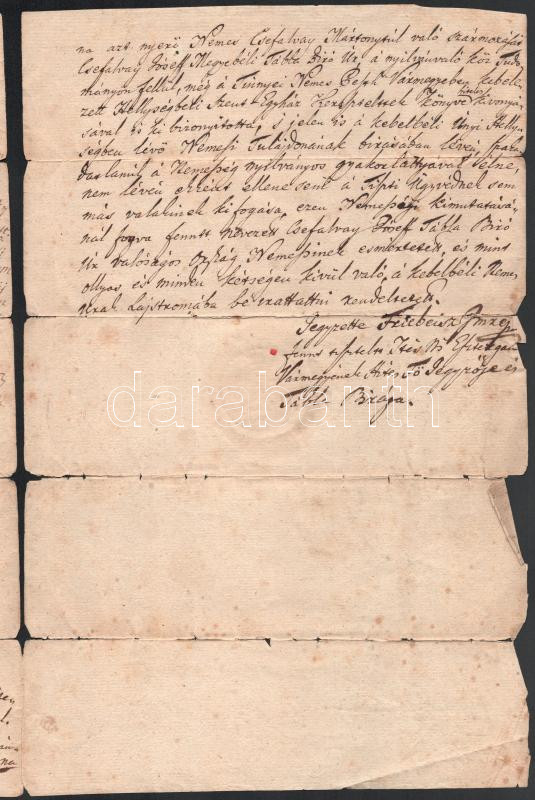 na azt nyerő Nemes Csefalvay Mártonytúl való származását
Csefalvay Joseff Megyebéli Tábla Biró Úr, a nyilvánvaló köz Tudo-
mányon fellül, még a Tinnyei Nemes Pesth Vármegyeben kebele-
zett Hellységbéli Szent Egyház Kereszteltek Könyve hiteles kivonya-
sával is ki bizonyította, s jelen is a kebelbéli Únyi Helly-
ségben lévő Nemesi Tulajdonának birásában lévén,
a Nemesség nyilvános gyakorlattyával élne,
nem lévén ezekért ellene sem a Tiszti Ügyvédnek sem
más valakinek kifogása, ezen Nemesség kimutatásá-
nál fogva fenntt nevezett Csefalvay Josef Tábla Biró
Úr valóságos Ország Nemessinek esmértetett, és mint
ollyas és minden kétségen kívül való, a kebelbéli Neme-
Urak Lajstromába be irattattni rendeltetett.
Jegyzette Friebeisz Imre
fennt tisztelt Ttes Ns Esztergam
Vármegyének Hites Fő Jegyzője és
Tábla Birája.
darabanth